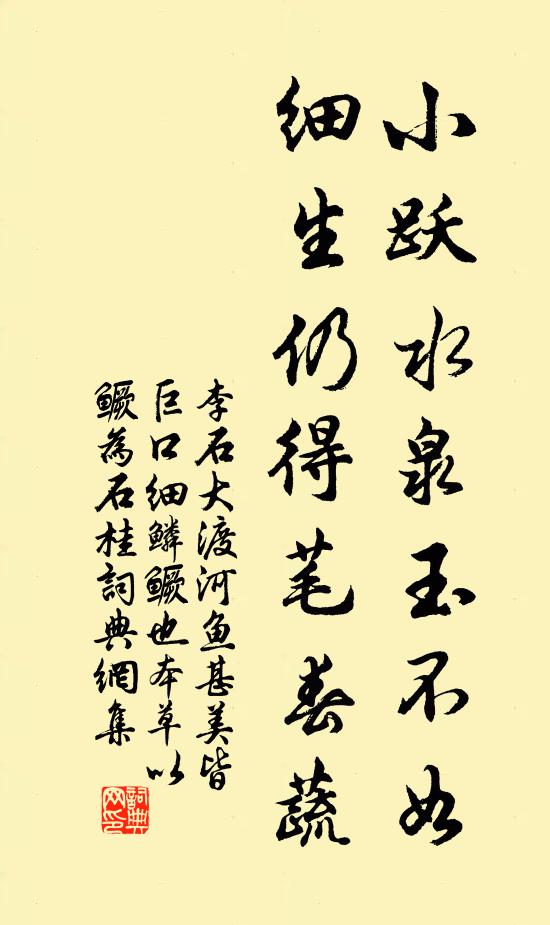 小跃水泉玉不如
细生仍得芼春蔬
李石大渡河鱼甚美皆
巨口细鳞鳜也本草以
鳜為石桂詞典網集
詞典网印